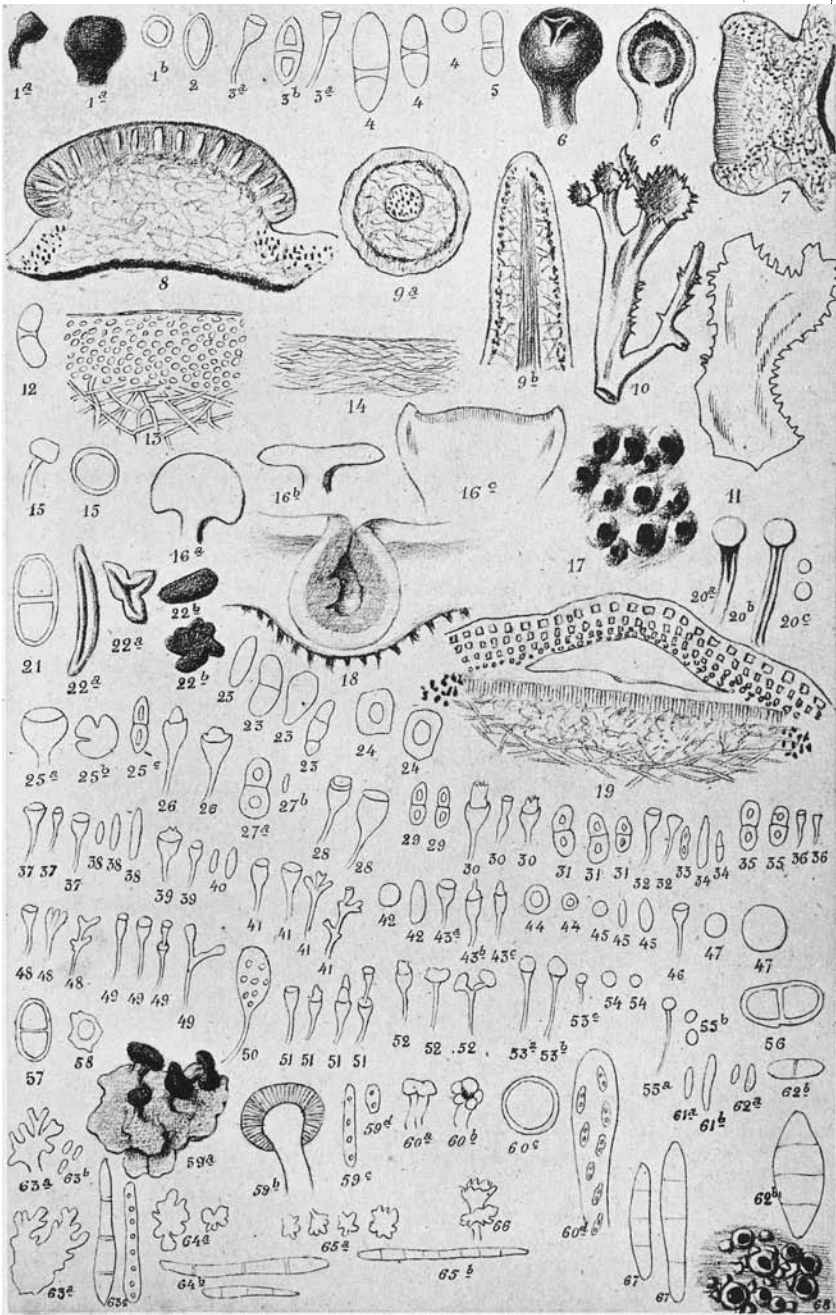 1a 1a 1b 2 3a 3b 3a 4 4 4 5 6 6 7
8 9a 9b 10 11
12 13 14
15 15 16a 16b 16c 17
18 20a 20b 20c
21 22a 22a 22b 22b 23 23 23 23 24 24 19
25a 25b 25c 26 26 27a 27b 28 28 29 29 30 30 30 31 31 31 32 32 33 34 34 35 35 36 36
37 37 37 38 38 38 39 39 40 41 41 41 41 42 42 43a 43b 43c 44 44 45 45 45 46 47 47
48 48 48 49 49 49 49 50 51 51 51 51 52 52 52 53a 53b 53c 54 54 55a 55b 56
57 58 59a 59b 59c 59d 60a 60b 60c 60d 61a 61b 62a 62b
63a 63b 62b
63a 63c 64a 64b 65a 65b 66 67 67